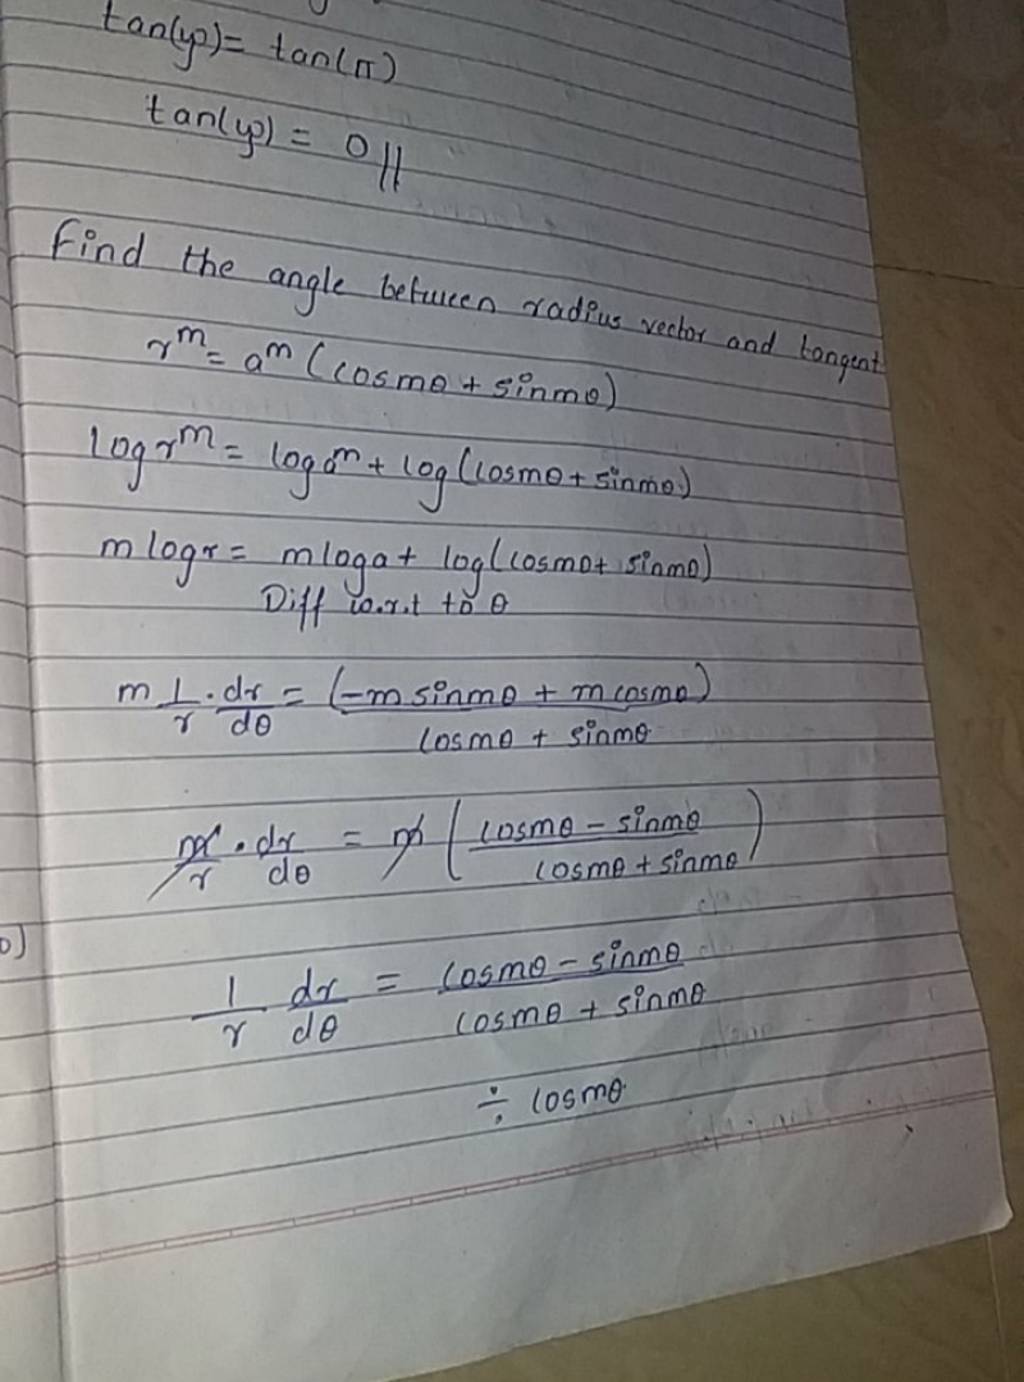 tan(φ) = tan(π)
tan(φ) = 0 //
find the angle between radius vector and tangent
r^m = a^m (cosmθ + sinmθ)
log r^m = log a^m + log(cosmθ + sinmθ)
m log r = m log a + log(cosmθ + sinmθ)
Diff w.r.t to θ
m 1/r . dr/dθ = (-m sinmθ + m cosmθ) / cosmθ + sinmθ
m/r . dr/dθ = m (cosmθ - sinmθ / cosmθ + sinmθ)
1/r dr/dθ = cosmθ - sinmθ / cosmθ + sinmθ
÷ cosmθ